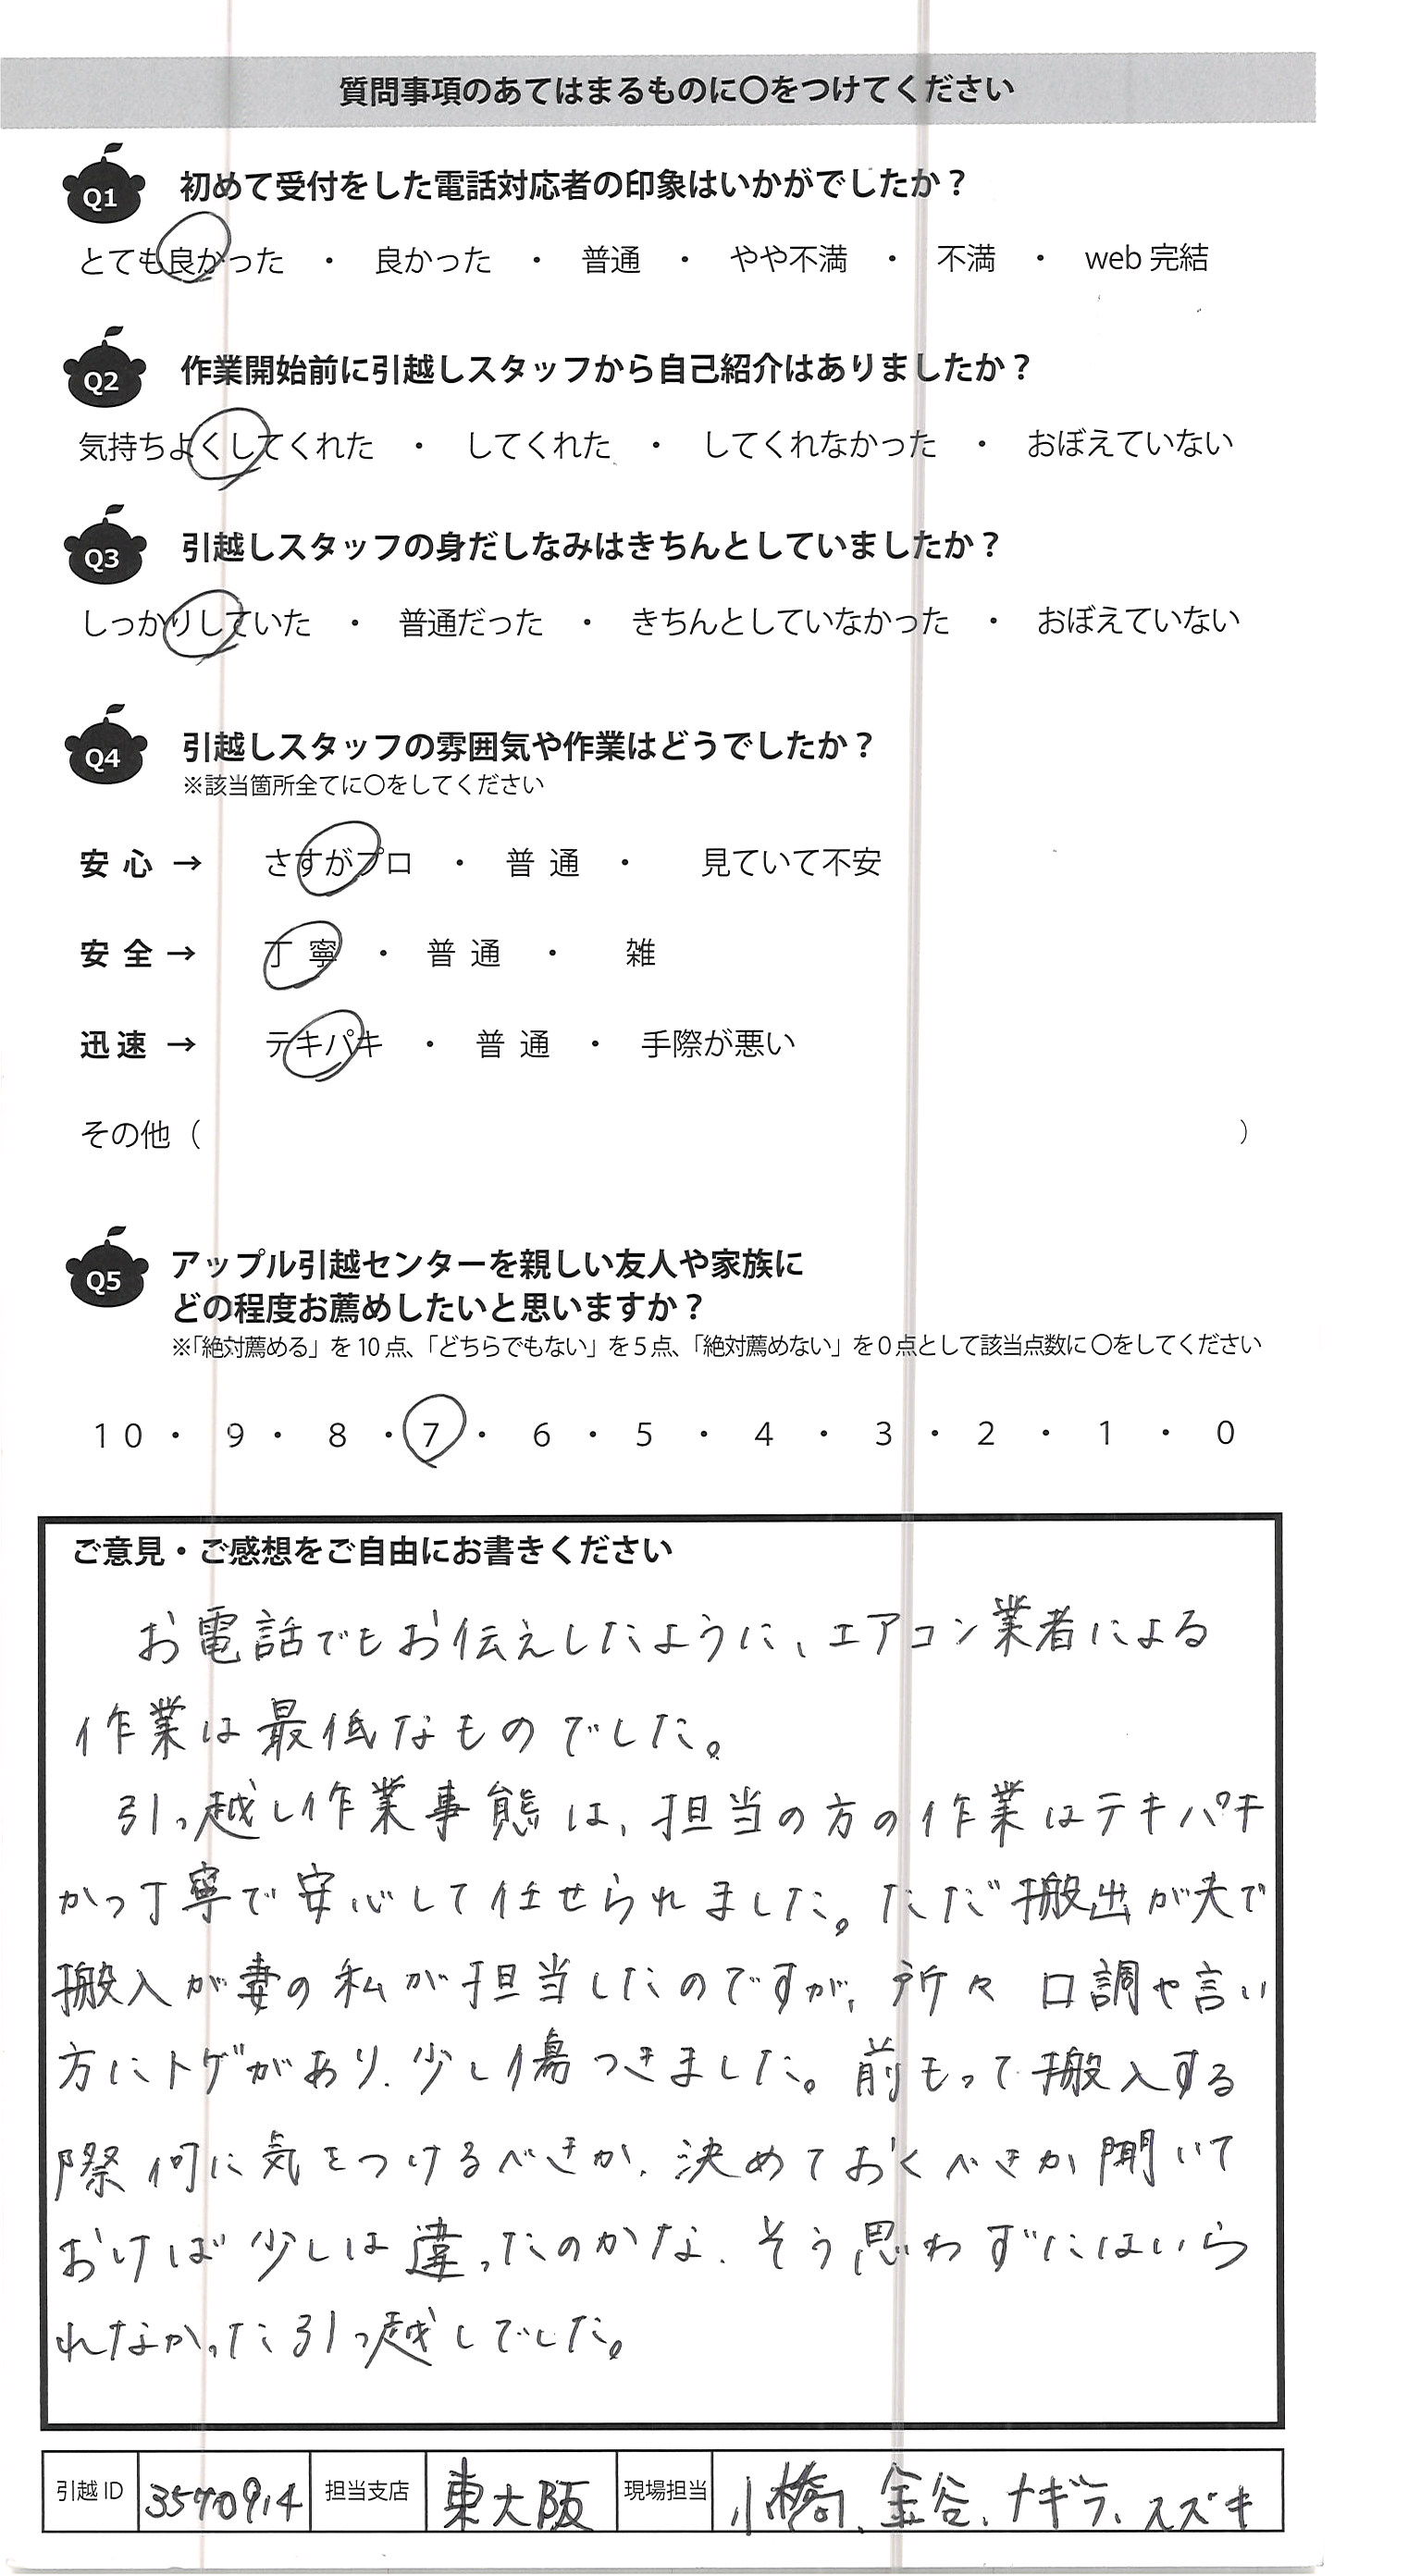 質問事項のあてはまるものに〇をつけてください
Q1 初めて受付をした電話対応者の印象はいかがでしたか？
とても良かった ・ 良かった ・ 普通 ・ やや不満 ・ 不満 ・ web 完結
Q2 作業開始前に引越しスタッフから自己紹介はありましたか？
気持ちよくしてくれた ・ してくれた ・ してくれなかった ・ おぼえていない
Q3 引越しスタッフの身だしなみはきちんとしていましたか？
しっかりしていた ・ 普通だった ・ きちんとしていなかった ・ おぼえていない
Q4 引越しスタッフの雰囲気や作業はどうでしたか？
※該当箇所全てに〇をしてください
安心 → さすがプロ ・ 普通 ・ 見ていて不安
安全 → 丁寧 ・ 普通 ・ 雑
迅速 → テキパキ ・ 普通 ・ 手際が悪い
その他（ ）
Q5 アップル引越センターを親しい友人や家族に
どの程度お薦めしたいと思いますか？
※「絶対薦める」を10点、「どちらでもない」を5点、「絶対薦めない」を0点として該当点数に〇をしてください
10 ・ 9 ・ 8 ・ 7 ・ 6 ・ 5 ・ 4 ・ 3 ・ 2 ・ 1 ・ 0
ご意見・ご感想をご自由にお書きください
お電話でもお伝えしたように、エアコン業者による
作業は最低なものでした。
引っ越し作業事態は、担当の方の作業はテキパキ
かつ丁寧で安心して任せられました。ただ搬出が夫で
搬入が妻の私が担当したのですが、所々 口調や言い
方にトゲがあり、少し傷つきました。前もって搬入する
際何に気をつけるべきか、決めておくべきか聞いて
おけば少しは違ったのかな、そう思わずにはいら
れなかった引っ越しでした。
引越ID 3570914 担当支店 東大阪 現場担当 小橋、金谷、ナギラ、スズキ